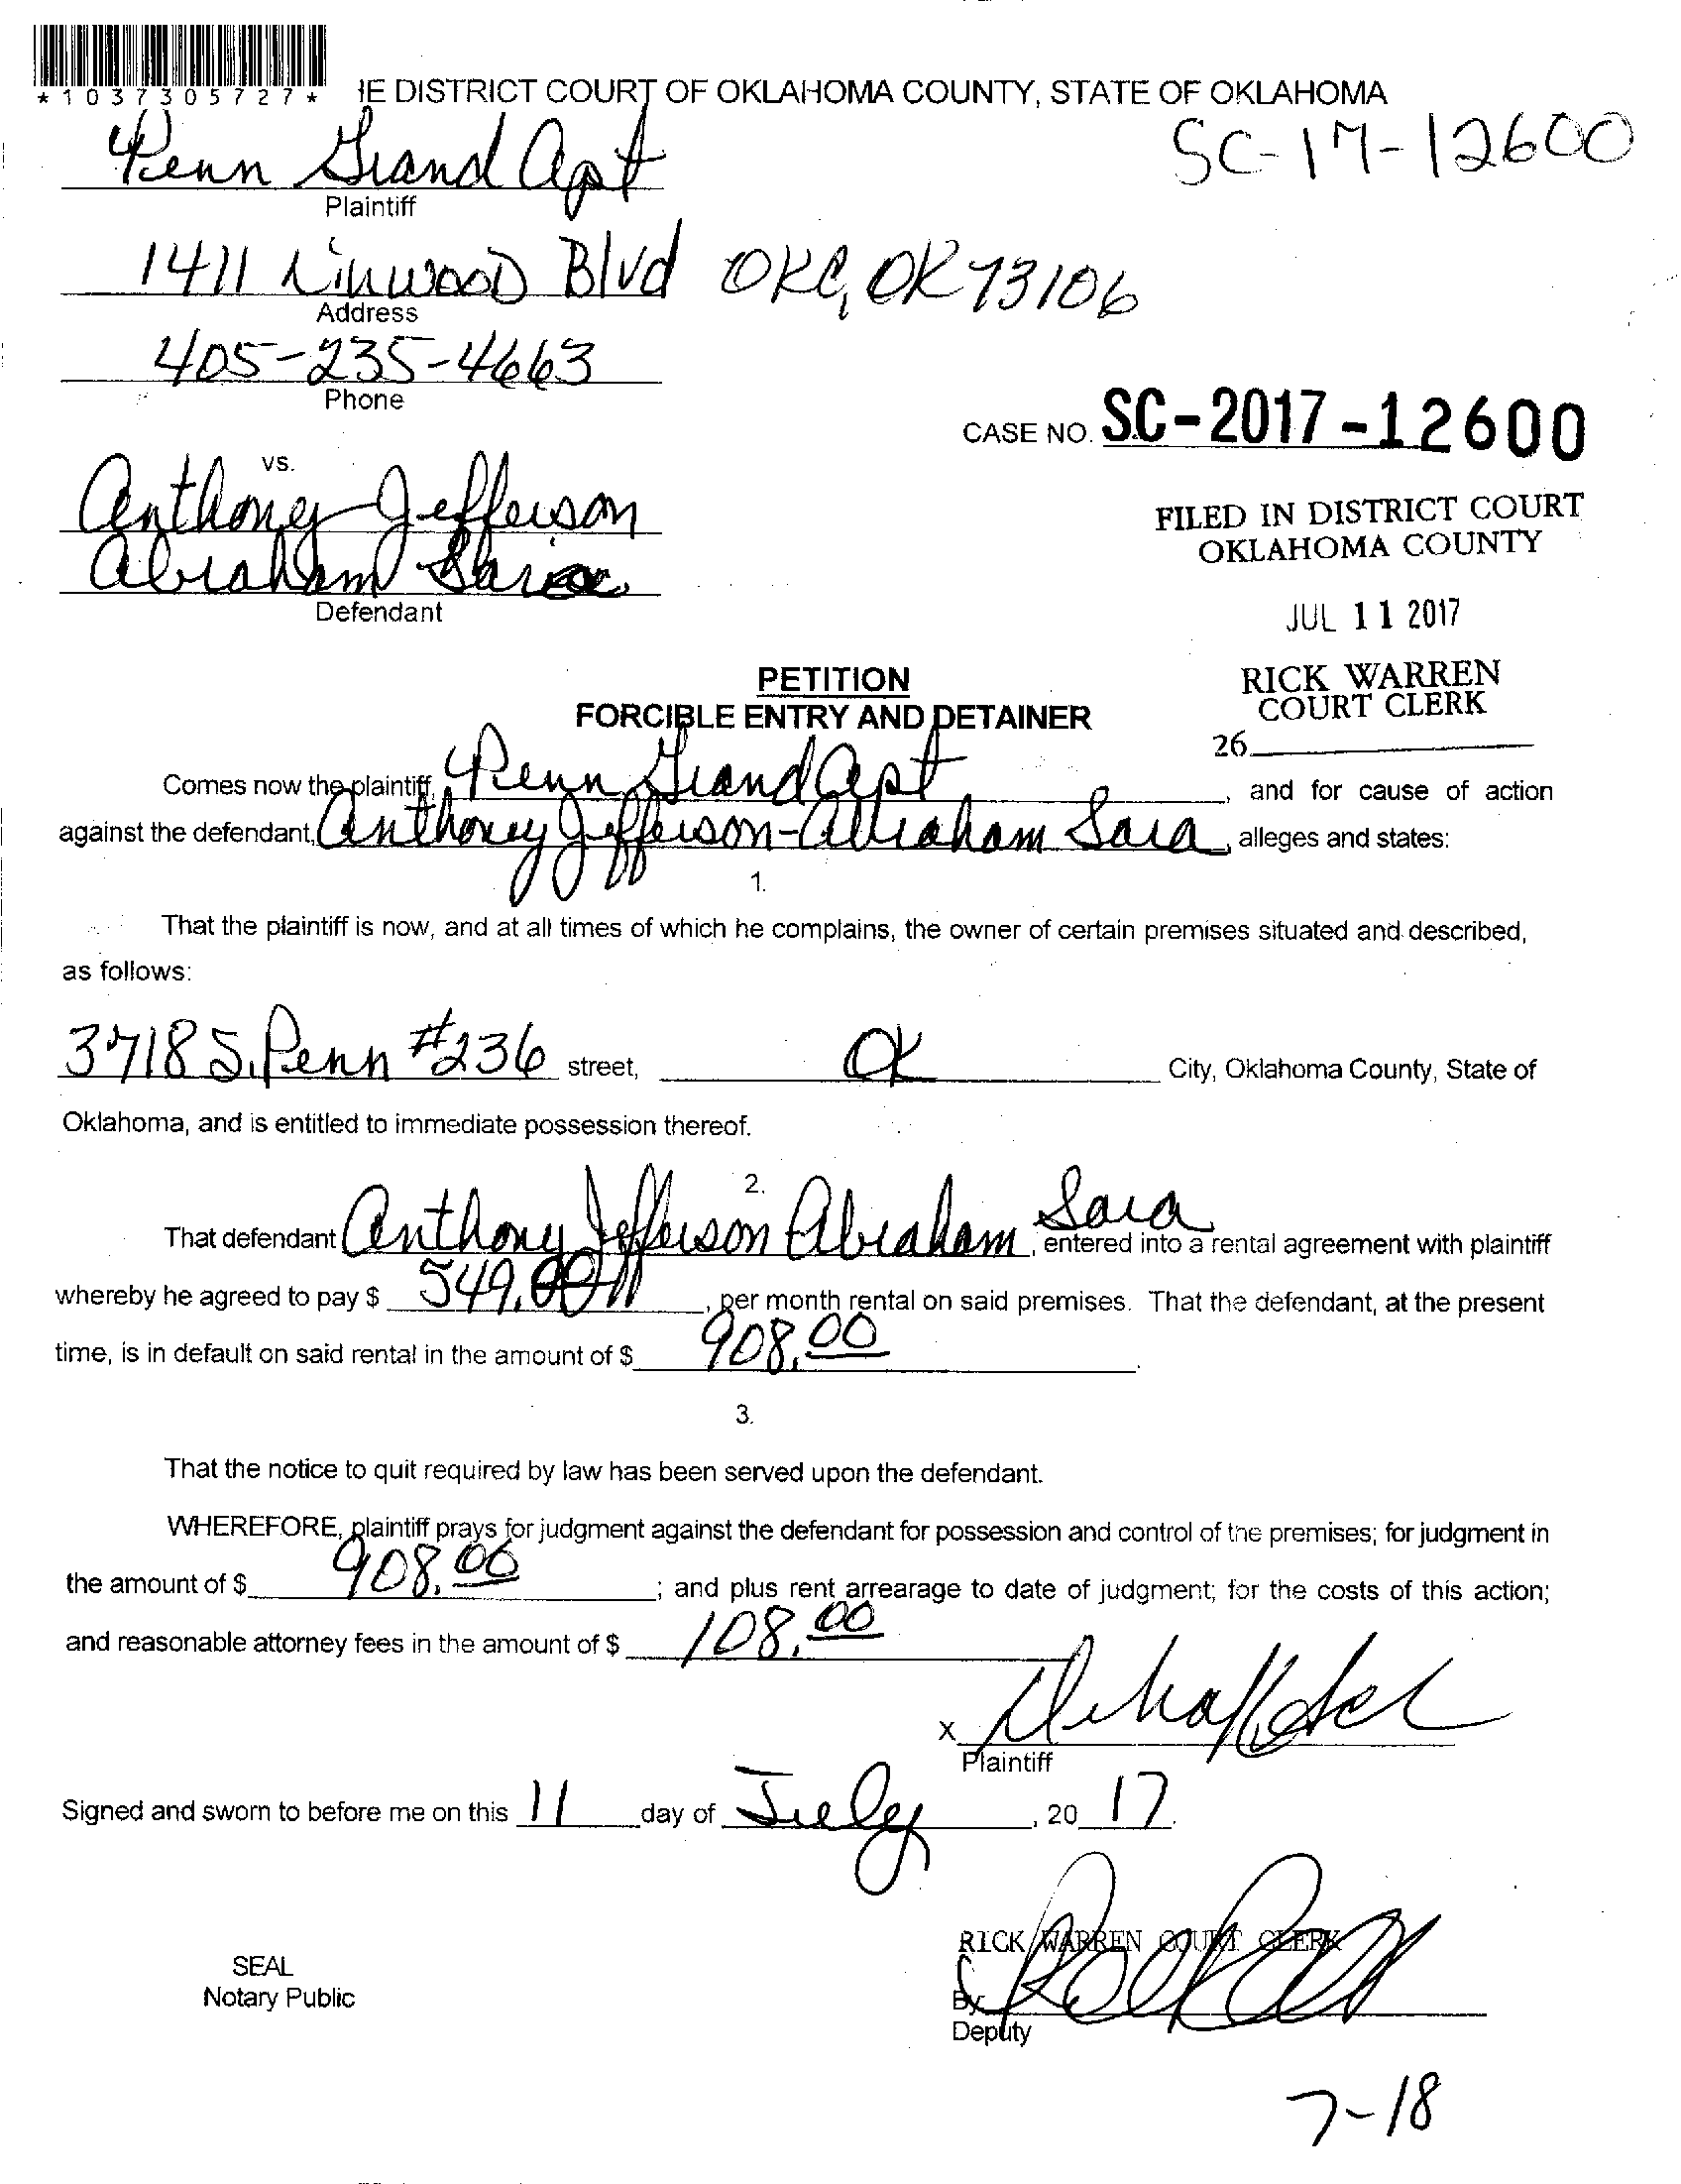 *1037305727*
IE DISTRICT COURT OF OKLAHOMA COUNTY, STATE OF OKLAHOMA
Penn Grand Apt
SC-17-12600
Plaintiff
1411 Linwood Blvd OKC, OK 73106
Address
405-235-4663
Phone
CASE NO. SC-2017-12600
vs.
Anthoney Jefferson
Abraham
Defendant
FILED IN DISTRICT COURT
OKLAHOMA COUNTY
JUL 11 2017
RICK WARREN
COURT CLERK
26
PETITION
FORCIBLE ENTRY AND DETAINER
Comes now the plaintiff, Penn Grand Apt, and for cause of action
against the defendant, Anthoney Jefferson-Abraham Sara, alleges and states:
1.
That the plaintiff is now, and at all times of which he complains, the owner of certain premises situated and described,
as follows:
3718 S. Penn #236 street, OK City, Oklahoma County, State of
Oklahoma, and is entitled to immediate possession thereof.
2.
That defendant Anthony Jefferson Abraham Sara, entered into a rental agreement with plaintiff
whereby he agreed to pay $ 549.00, per month rental on said premises. That the defendant, at the present
time, is in default on said rental in the amount of $ 908.00.
3.
That the notice to quit required by law has been served upon the defendant.
WHEREFORE, plaintiff prays for judgment against the defendant for possession and control of the premises; for judgment in
the amount of $ 908.00; and plus rent arrearage to date of judgment; for the costs of this action;
and reasonable attorney fees in the amount of $ 108.00
X
Plaintiff
Signed and sworn to before me on this 11 day of July, 20 17.
RICK WARREN COURT CLERK
SEAL
Notary Public
By
Deputy
7-18